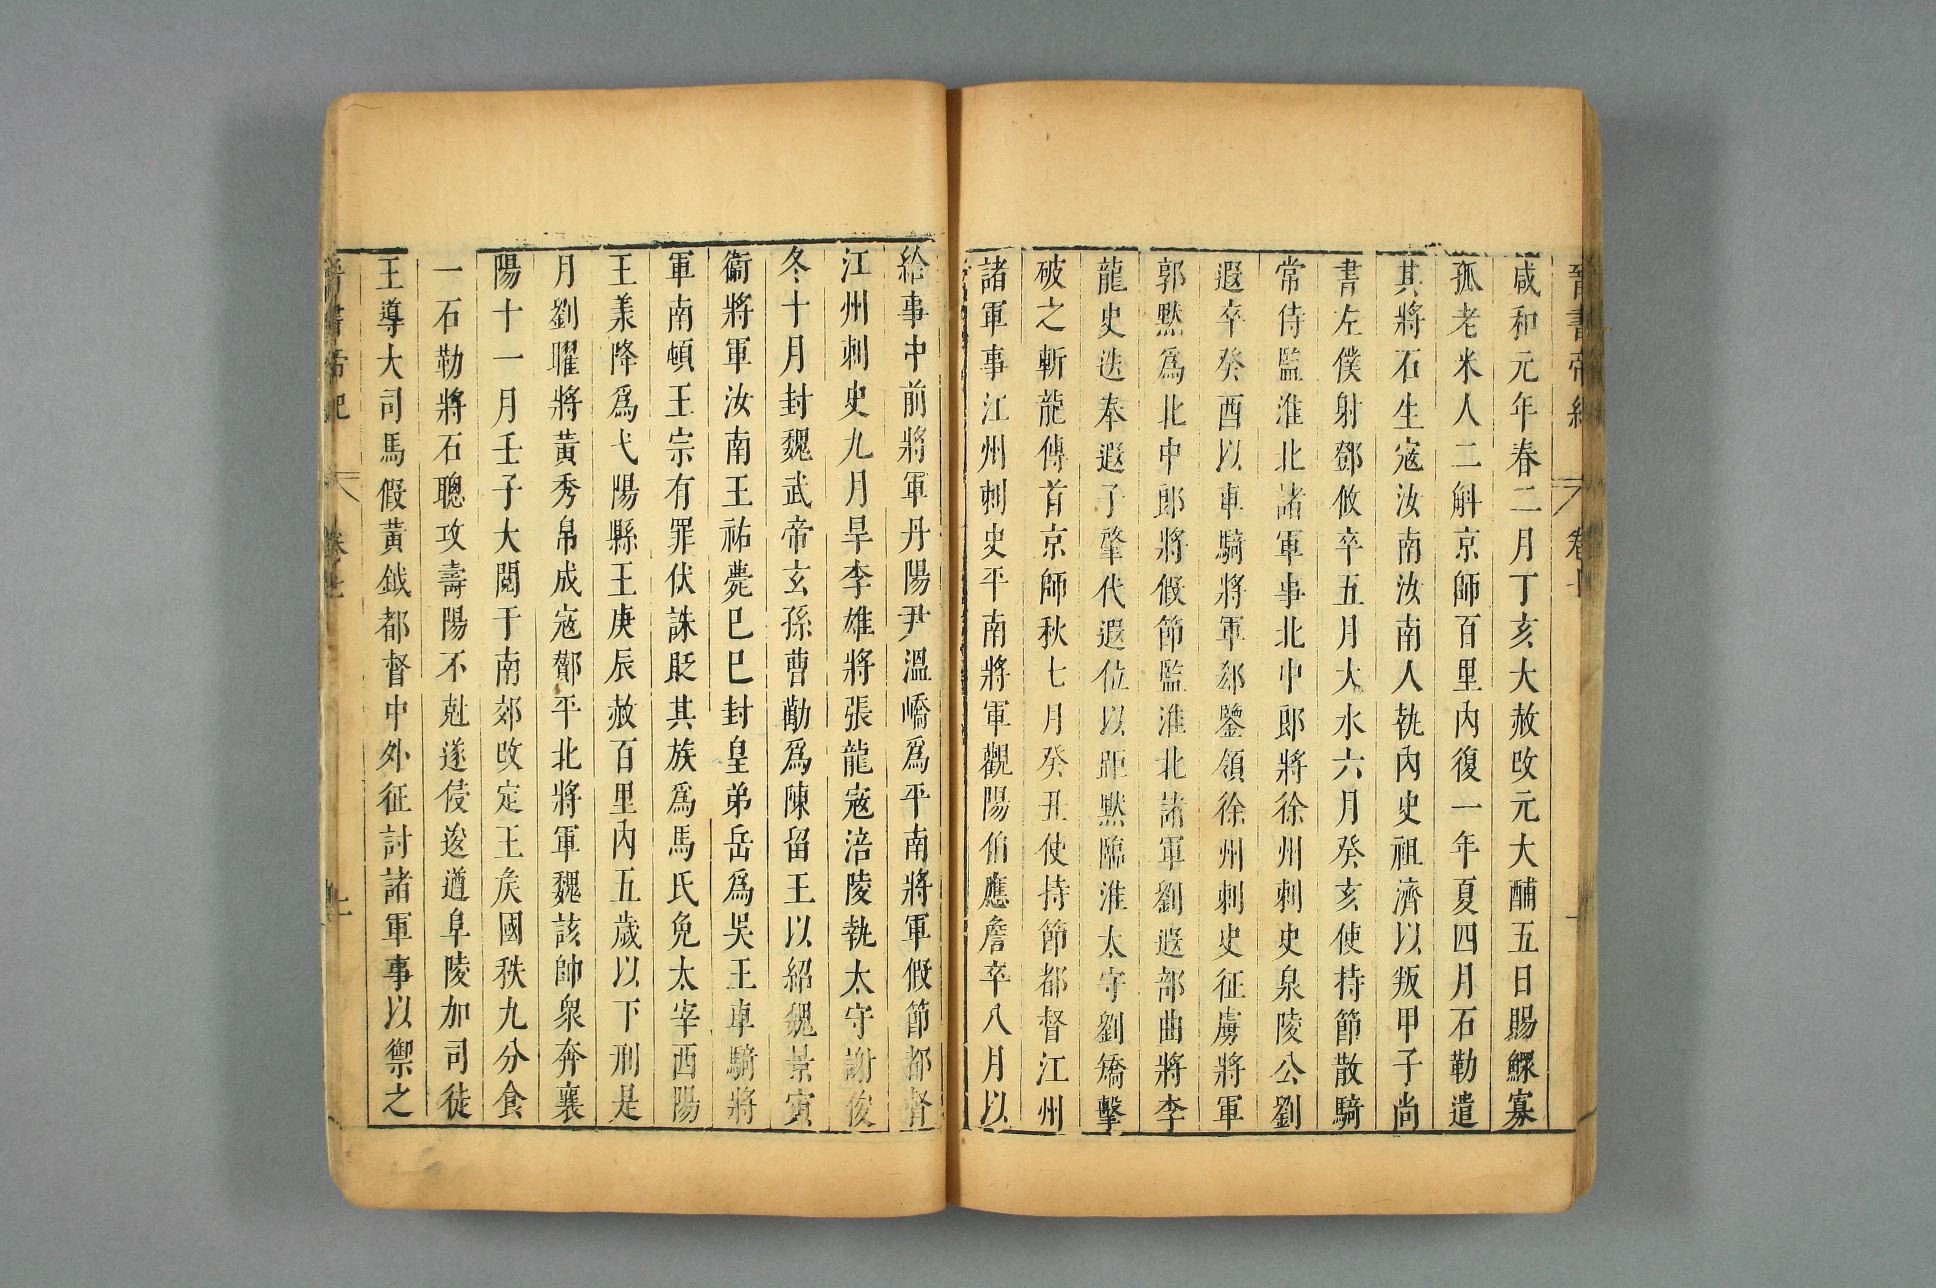 晉書帝紀 卷七
咸和元年春二月丁亥大赦改元大酺五日賜鰥寡
孤老米人二斛京師百里內復一年夏四月石勒遣
其將石生寇汝南汝南人執內史祖濟以叛甲子尚
書左僕射鄧攸卒五月大水六月癸亥使持節散騎
常侍監淮北諸軍事北中郎將徐州刺史泉陵公劉
遐卒癸酉以車騎將軍郄鑒領徐州刺史征虜將軍
郭默爲北中郎將假節監淮北諸軍劉遐部曲將李
龍史迭奉遐子肇代遐位以距默臨淮太守劉矯擊
破之斬龍傳首京師秋七月癸丑使持節都督江州
諸軍事江州刺史平南將軍觀陽伯應詹卒八月以
給事中前將軍丹陽尹溫嶠爲平南將軍假節都督
江州刺史九月旱李雄將張龍寇涪陵執太守謝俊
冬十月封魏武帝玄孫曹勱爲陳留王以紹魏景寅
衞將軍汝南王祐薨己巳封皇弟岳爲吳王車騎將
軍南頓王宗有罪伏誅貶其族爲馬氏免太宰西陽
王羕降爲弋陽縣王庚辰赦百里內五歲以下刑是
月劉曜將黃秀帛成寇酇平北將軍魏該帥衆奔襄
陽十一月壬子大閱于南郊改定王矦國秩九分食
一石勒將石聰攻壽陽不剋遂侵逡遒阜陵加司徒
王導大司馬假黃鉞都督中外征討諸軍事以禦之
晉書帝紀 卷七